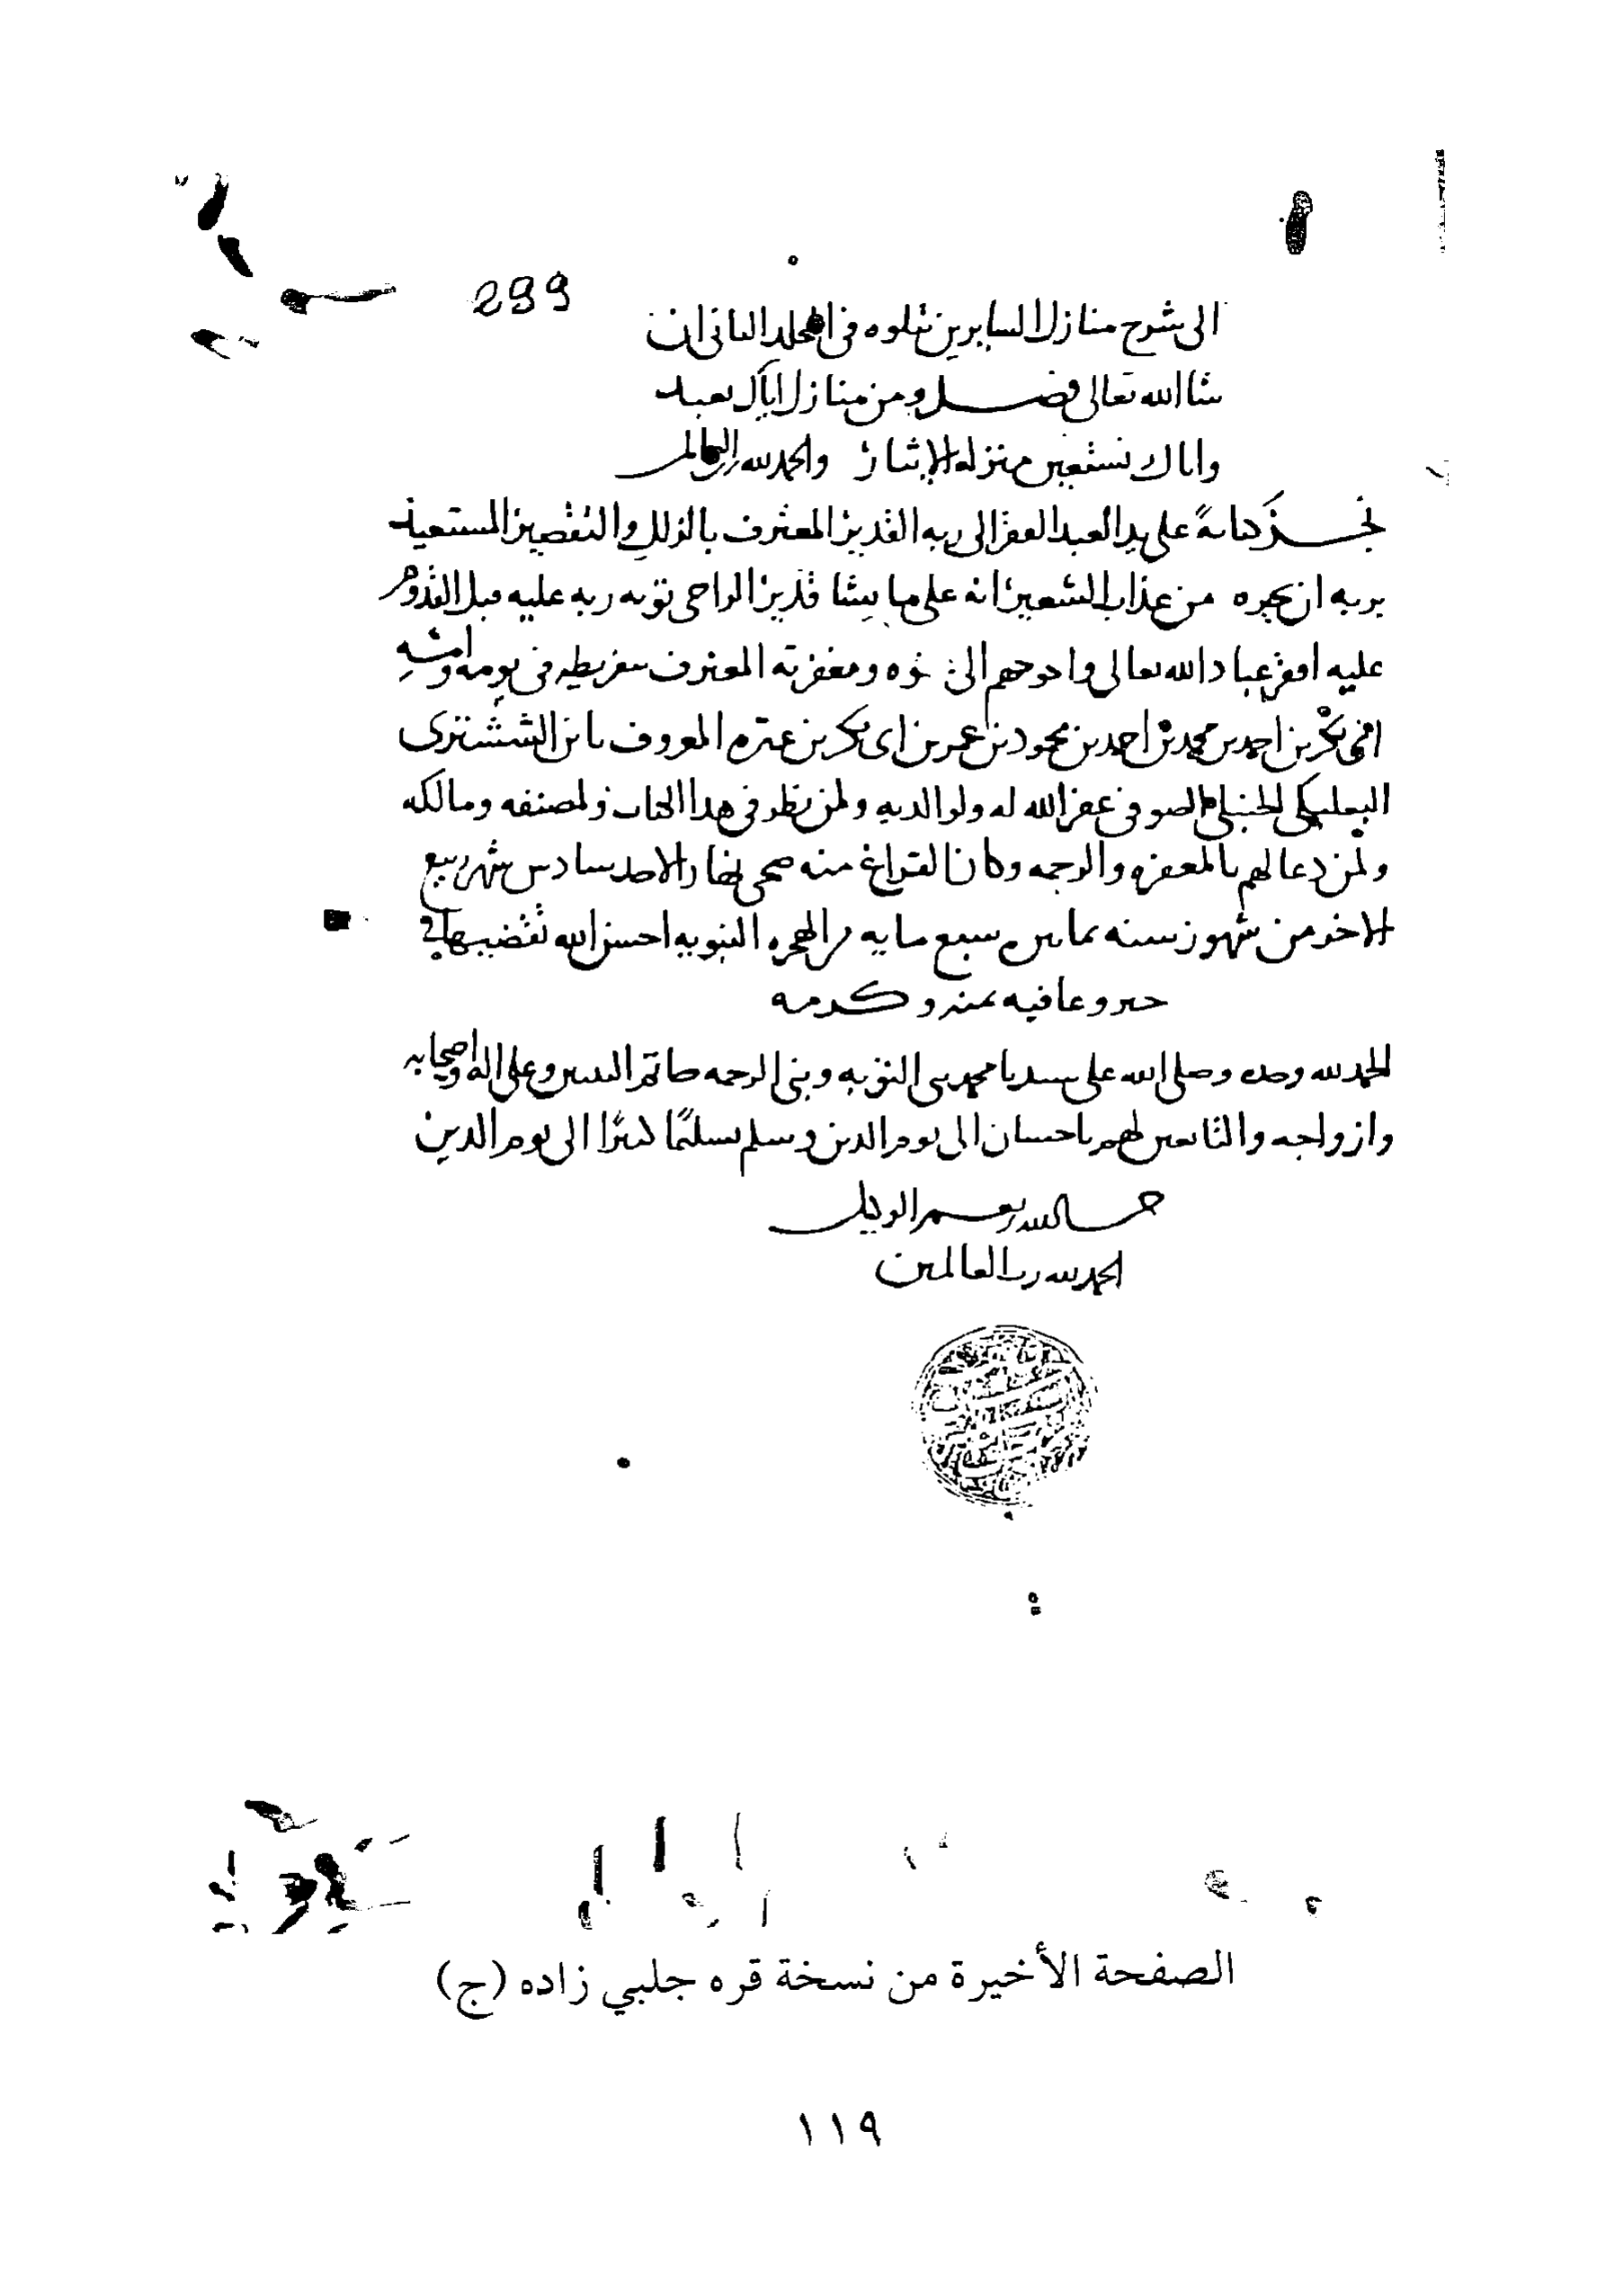 299
الى شرح منازل السايرين نتلوه في المجلد الثاني ان
شا الله تعالى فصل ومن منازل اياك نعبد
واياك نستعين منزله الايثار والحمد لله رب العالمين
نجز كتابةً على يد العبد الفقير الى ربه القدير المعترف بالزلل والتقصير المستعيذ
بربه ان يجيره من عذاب السعير انه على ما يشا قدير الراجى توبه ربه عليه قبل القدوم
عليه افقر عباد الله تعالى واحوجهم الى ومغفرته المعترف بتفريطه في يومه وامسه
ابى بكر بن احمد بن محمد بن احمد بن محمود بن عمر بن ابى بكر بن المعروف بابن الششترى
البعلبكى الحنبلي الصوفى غفر الله له ولوالديه ولمن نظر فى هذا الكتاب ولمصنفه ومالكه
ولمن دعا لهم بالمغفره والرحمه وكان الفراغ منه ضحى نهار الاحد سادس شهر ربيع
الاخر من شهور سنه ثمانين وسبع مايه من الهجره النبويه احسن الله تقضيها في
خير وعافيه بمنه وكرمه
الحمد لله وحده وصلى الله على سيدنا محمد نبى التوبه ونبى الرحمه خاتم النبيين وعلى اله واصحابه
وازواجه والتابعين لهم باحسان الى يوم الدين وسلم تسليمًا كثيرًا الى يوم الدين
حسبنا الله ونعم الوكيل
الحمد لله رب العالمين
الصفحة الأخيرة من نسخة قره جلبي زاده (ج)
١١٩